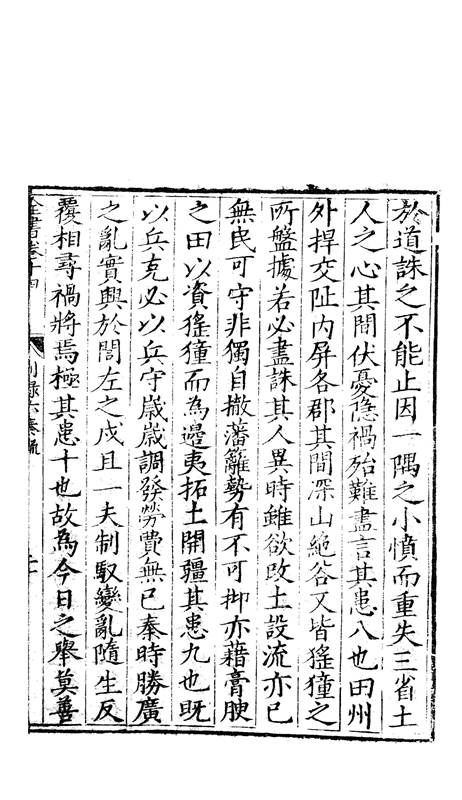 於道誅之不能止因一隅之小憤而重失三省土
人之心其間伏憂隱禍殆難盡言其患八也田州
外捍交阯内屏各郡其間深山絶谷又皆猺獞之
所盤據若必盡誅其人異時雖欲改土設流亦已
無民可守非獨自撤藩籬勢有不可抑亦藉膏腴
之田以資猺獞而為邊夷拓土開疆其患九也既
以兵克必以兵守歲歲調發勞費無已秦時勝廣
之亂實興於閭左之戍且一夫制馭變亂隨生反
覆相尋禍將焉極其患十也故為今日之舉莫善
全書卷十四
別錄六奏疏